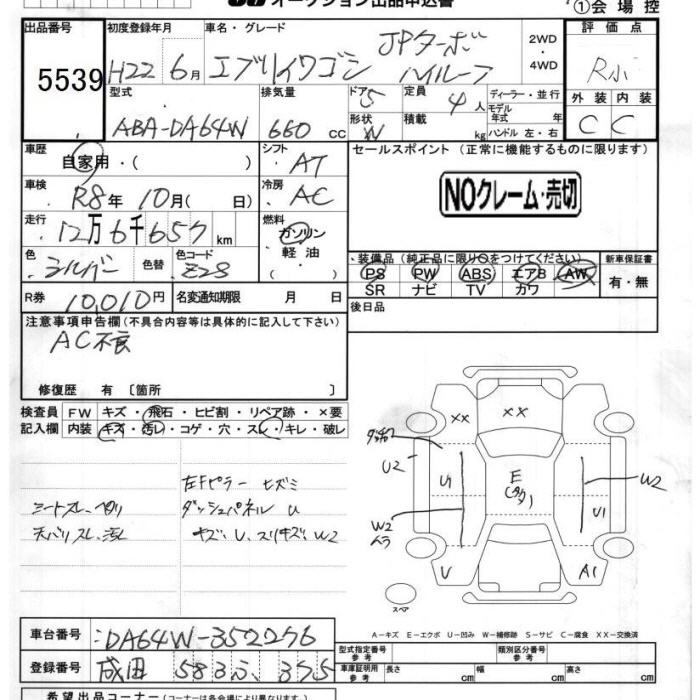 オークション出品申込書
①会場控
出品番号 5539
初度登録年月 H22 6月
車名・グレード エブリイワゴン JPターボ ハイルーフ
2WD・4WD
評価点 R
外装 内装
C C
型式 ABA-DA64W
排気量 660 cc
ドア 5
形状 W
定員 4人
積載 kg
ディーラー・並行
モデル年式 年
ハンドル 左・右
車歴 自家用・( )
シフト AT
セールスポイント (正常に機能するものに限ります)
車検 R8年 10月( 日)
冷房 AC
NOクレーム・売切
走行 12万6千657 km
燃料 ガソリン・軽油・( )
色 シルバー 色替 色コード Z2S
・装備品 (純正品に限り○をつけてください) 新車保証書
PS PW ABS エアB AW
SR ナビ TV カワ
有・無
R券 10,010円 名変通知期限 月 日
後日品
注意事項申告欄 (不具合内容等は具体的に記入して下さい)
AC不良
修復歴 有 〔箇所 〕
検査員記入欄
FW キズ・飛石・ヒビ割・リペア跡・×要
内装 キズ・汚レ・コゲ・穴・スレ・キレ・破レ
左Fピラー ヒズミ
シートスレ、ヘタリ ダッシュパネル U
天バリスレ、汚レ キズ、U、スリキズ W2
XX XX
U2
U1 E W2
W2 U1
U A1
スペア
A-キズ E-エクボ U-凹み W-補修跡 S-サビ C-腐食 XX-交換済
車台番号 DA64W-352276
型式指定番号 参考
類別区分番号 参考
登録番号 成田 583 375
車庫証明用 参考 長さ cm 幅 cm 高さ cm
希望出品コーナー (コーナーは各会場により異なります)